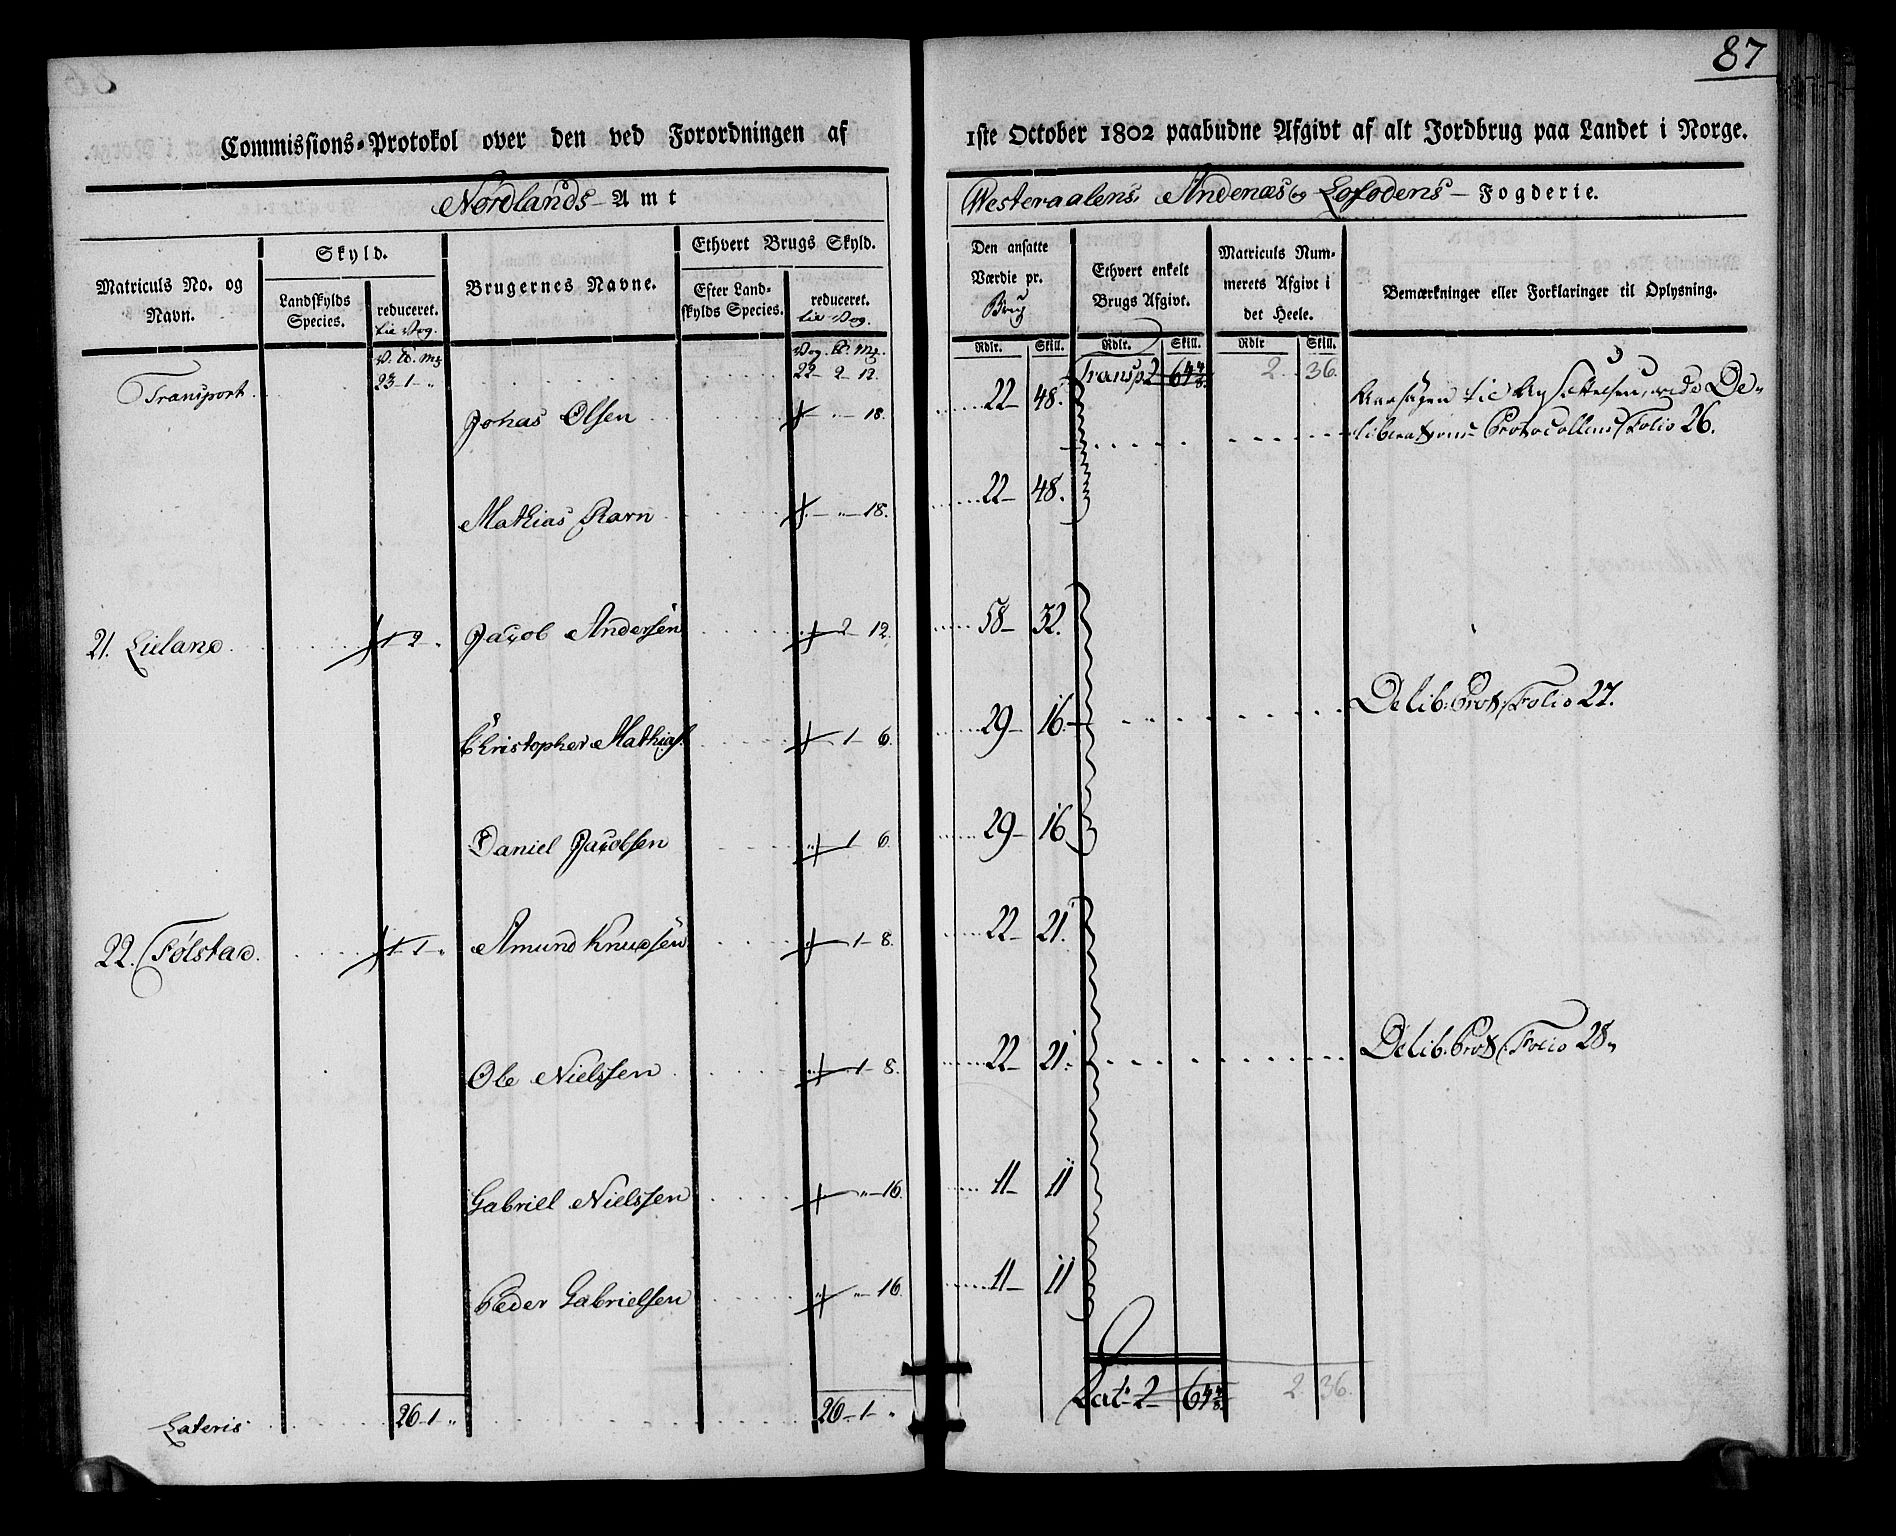 87
Commissions-Protokol over den ved Forordningen af 1ste October 1802 paabudne Afgivt af alt Jordbrug paa Landet i Norge.
Nordlands Amt
Westeraalens Andenæs og Lofodens Fogderie.
Matriculs No. og Navn.
Skyld.
Landskylds Species.
reduceret. til Vog.
Brugernes Navne.
Ethvert Brugs Skyld.
Efter Landskylds Species.
reduceret. til Vog.
Den ansatte Værdie pr. Brug
Ethvert enkelt Brugs Afgivt.
Matriculs Nummerets Afgivt i det Heele.
Bemærkninger eller Forklaringer til Oplysning.
Rdlr. Skill. Rdlr. Skill. Rdlr Skill.
Transport. 23-1-" 22-2-12. Transp. 2 64 4/8. 2. 36.
Jonas Olsen "-18. 22- 48. Aarsagen til Nysættelsen, vide De-
liberations Protocollens Folio 26.
Mathias Ravn "-18. 22- 48.
21. Liland 1-2-" Jacob Andersen 2-12. 58- 32.
Christopher Mathias. 1-6. 29- 16. Delib: Prot: Folio 27.
Daniel Jacobsen 1-6. 29- 16
22. Følstad. 1-1-" Amund Knudsen 1-8. 22- 21.
Ole Nielssen 1-8. 22- 21. Delib: Prot: Folio 28.
Gabriel Nielssen "-16. 11- 11
Peder Gabrielsen "-16. 11- 11
Lateris 26-1-" 26-1-" Lat: 2- 64 4/8. 2. 36.